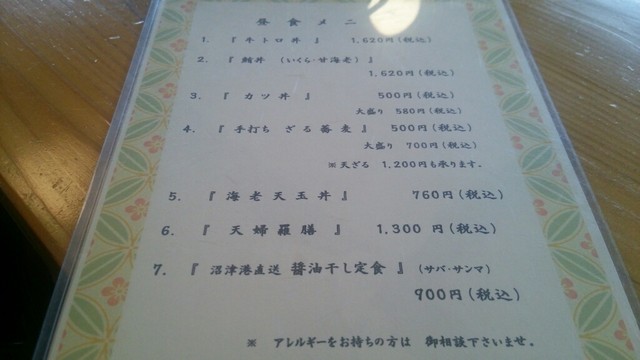 昼食メニ
1. 『 牛トロ丼 』 1,620円(税込)
2. 『 鮪丼 (いくら・甘海老) 』
1,620円(税込)
3. 『 カツ丼 』 500円(税込)
大盛り 580円(税込)
4. 『 手打ち ざる蕎麦 』 500円(税込)
大盛り 700円(税込)
※天ざる 1,200円も承ります。
5. 『 海老天玉丼 』 760円(税込)
6. 『 天婦羅膳 』 1,300 円(税込)
7. 『 沼津港直送 醤油干し定食 』 (サバ・サンマ)
900円(税込)
※ アレルギーをお持ちの方は 御相談下さいませ。